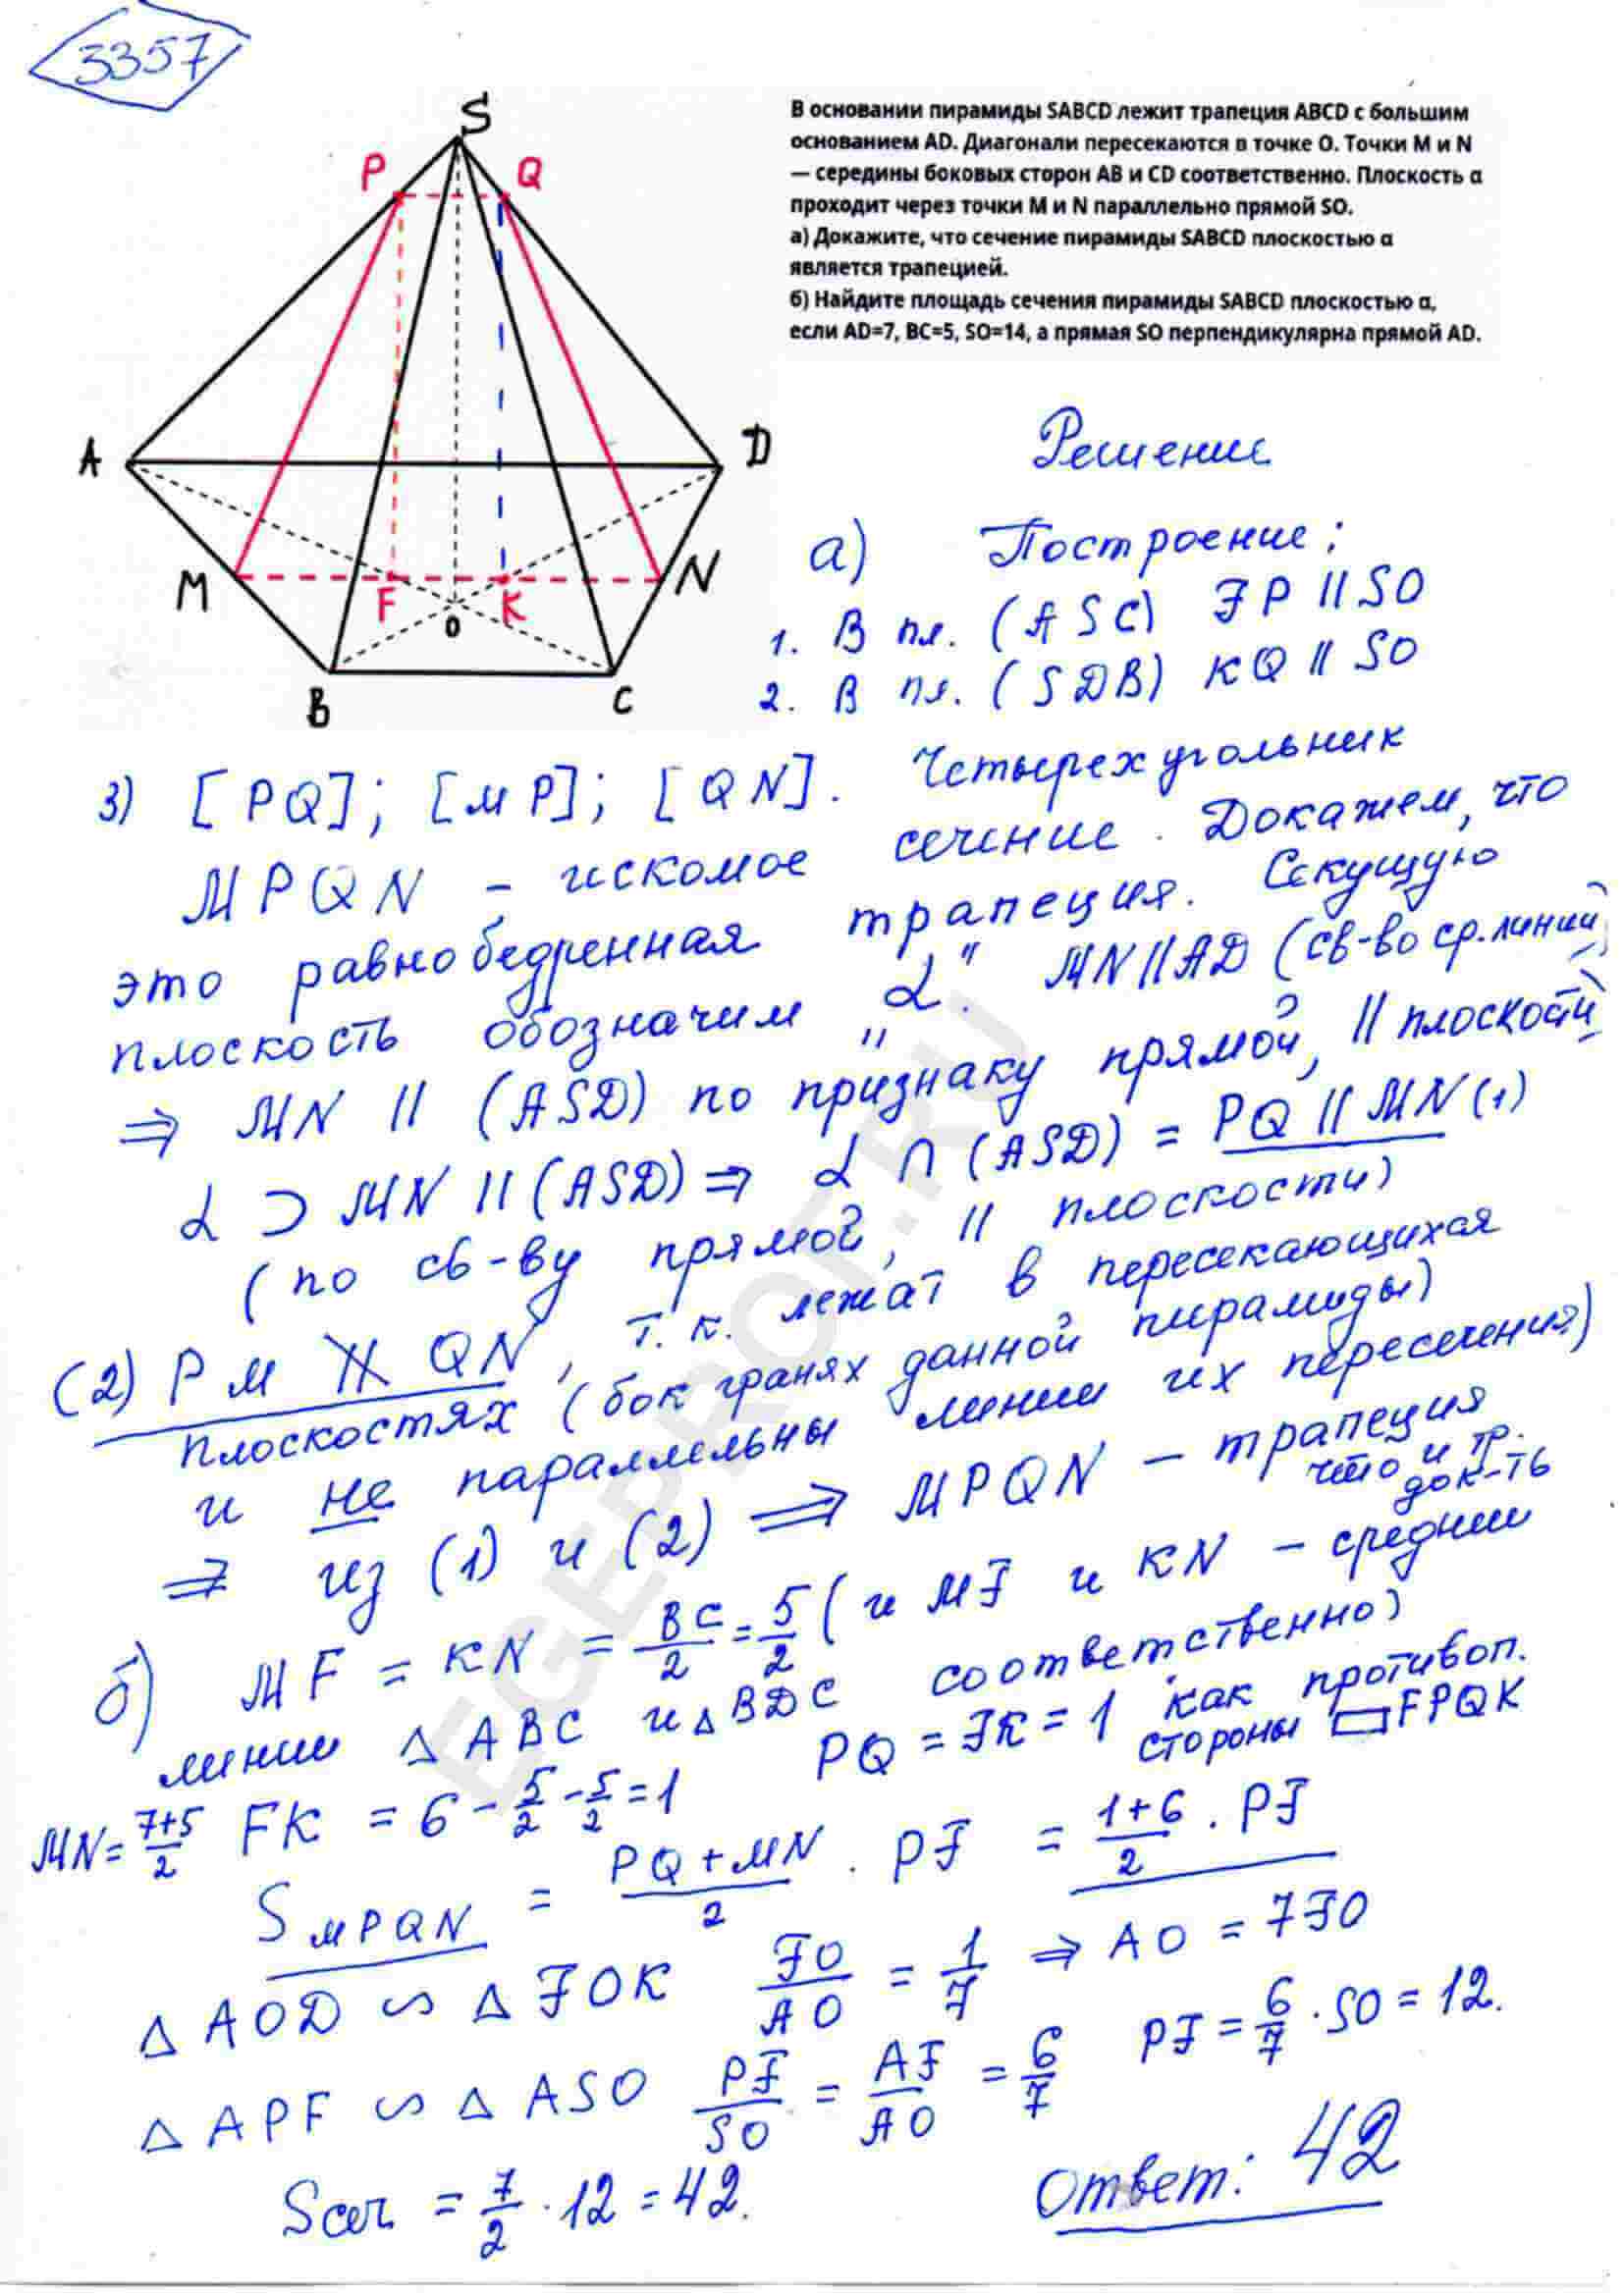 3357
S
P
Q
A
D
M
F
K
N
O
B
C
В основании пирамиды SABCD лежит трапеция ABCD с большим
основанием AD. Диагонали пересекаются в точке O. Точки M и N
— середины боковых сторон AB и CD соответственно. Плоскость α
проходит через точки M и N параллельно прямой SO.
а) Докажите, что сечение пирамиды SABCD плоскостью α
является трапецией.
б) Найдите площадь сечения пирамиды SABCD плоскостью α,
если AD=7, BC=5, SO=14, а прямая SO перпендикулярна прямой AD.
Решение
а) Построение:
1. В пл. (ASC) FP || SO
2. В пл. (SDB) KQ || SO
3) [PQ]; [MP]; [QN]. Четырехугольник
MPQN – искомое сечение. Докажем, что
это равнобедренная трапеция. Секущую
плоскость обозначим "α". MN||AD (св-во ср. линии)
⇒ MN || (ASD) по признаку прямой, || плоскости
α ⊃ MN || (ASD) ⇒ α ∩ (ASD) = PQ || MN (1)
(по св-ву прямой, || плоскости)
(2) PM ∦ QN, т.к. лежат в пересекающихся
плоскостях (бок гранях данной пирамиды)
и не параллельны линии их пересечения)
⇒ из (1) и (2) ⇒ MPQN – трапеция
что и тр. док-ть
б) MF = KN = BC/2 = 5/2 (и MF и KN – средние
линии △ABC и △BDC соответственно)
MN = 7+5/2 FK = 6 - 5/2 - 5/2 = 1 PQ = FK = 1 как противоп. стороны ▭FPQK
S MPQN = PQ+MN/2 · PF = 1+6/2 · PF
△AOD ∽ △FOK FO/AO = 1/7 ⇒ AO = 7FO
△APF ∽ △ASO PF/SO = AF/AO = 6/7 PF = 6/7 · SO = 12.
Sсеч = 7/2 · 12 = 42.
Ответ: 42
EGEPROF.RU